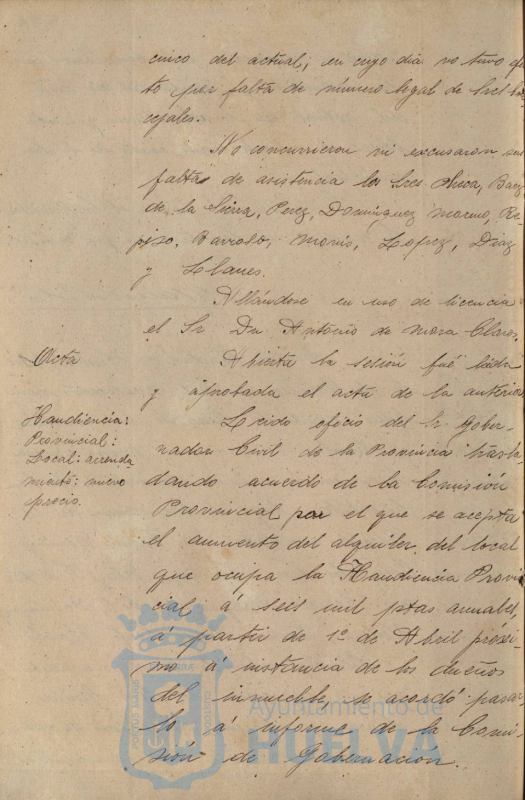 cinco del actual; en cuyo dia no tuvo efec
to por falta de número legal de Sres Con
cejales.
No concurrieron ni excusaron sus
faltas de asistencia los Sres Baez
de la Sierra, Perez, Dominguez Moreno, Re-
piso, Barroso, Monis, Lopez, Diaz
y Llanes.
Allándose en uso de licencia
el Sr Dn Antonio de Mora Claros.
Acta
Abierta la sesión fué leida
y aprobada el acta de la anterior
Haudiencia:
Provincial:
Local: arrenda
miento: nuevo
precio.
Leido oficio del Sr. Gober-
nador Civil de la Provincia trasla
dando acuerdo de la Comisión
Provincial por el que se acepta
el aumento del alquiler del local
que ocupa la Haudiencia Provin
cial á seis mil ptas annabes,
á partir de 1º de Abril próxi-
mo á instancia de los dueños
del inmueble, se acordó pasar
lo á informe de la Comi-
sión de Gobernación.
Ayuntamiento de
HUELVA